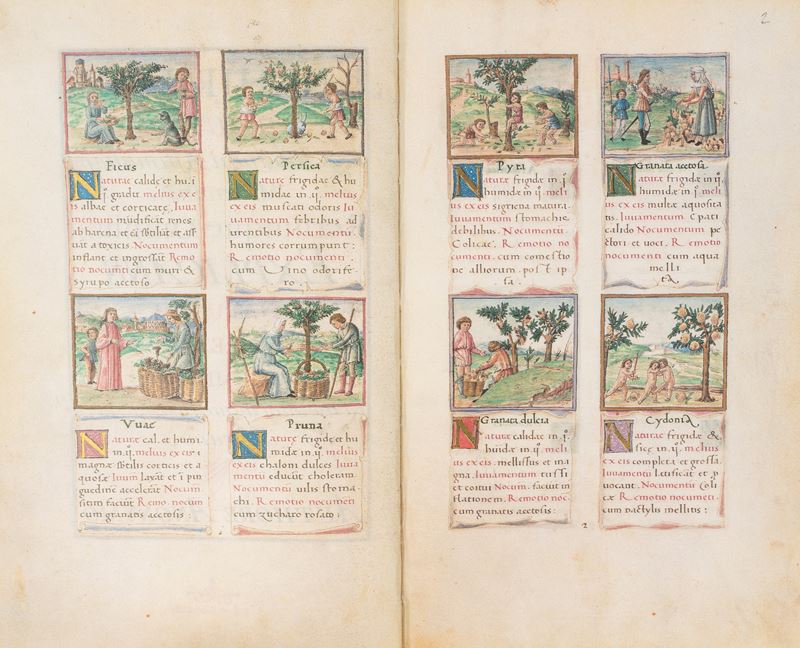 2
Ficus
Naturæ calidæ et hu. i
gradu melius ex e
is albæ et corticatæ Iuva
mentum mundificat renes
ab harena et
uat a toxicis Nocumentum
inflant et ingrossāt Remo
tio nocumēti cum muri &
Syrupo acetoso
Persica
Naturæ frigidæ & hu
midæ in ij. melius
ex eis muscati odoris Iu
uamentum febribus ad
urentibus Nocumentū.
humores corrumpunt :
Remotio nocumenti.
cum Uino odorife
ro .
Vuæ
Naturæ cal. et humi.
in .ij. melius ex eis i
magnæ sb̄tilis corticis et a
quosæ Iuum laxāt et ipin
guedinē accelerāt Nocum
sitim faciūt Remo. nocum
cum granatis acetosis :
Pruna
Naturæ frigidæ et hu
midæ in .ij. melius
ex eis chaloni dulces Iuua
mentū educūt choleram.
Nocumentū uilis stoma
chi . Remotio nocumēti
cum zucharo rosato :
Pyra
Naturæ frigidæ in i.
humidæ in .ij. meli
us ex eis sigriena matura.
Iuuamentum stomachis
debilibus. Nocumentū.
Colicæ. Remotio no
cumenti. cum comestio
ne alliorum post ip
sa.
Granata acetosa
Naturæ frigidæ in ij.
humidæ in i. meli
us ex eis multæ aquosita
tis. Iuuamentum epati
calido Nocumentum pe
ctori et uoci. Remotio
nocumenti cum aqua
melli
ta
Granata dulcia
Naturæ calidæ in i.
huidæ in i. meli
us ex eis mellissus et ma
gna. Iuuamentum tussi
et coitui Nocum. faciūt in
flationem. Remotio noc.
cum granatis acetosis :
Cydonia
Naturæ frigidæ &
siccæ in .ij. melius
ex eis completa et grossa
Iuuamentū lætificāt et p
uocant. Nocumentū Coli
cæ. Remotio nocumēti.
cum dactylis mellitis :
2